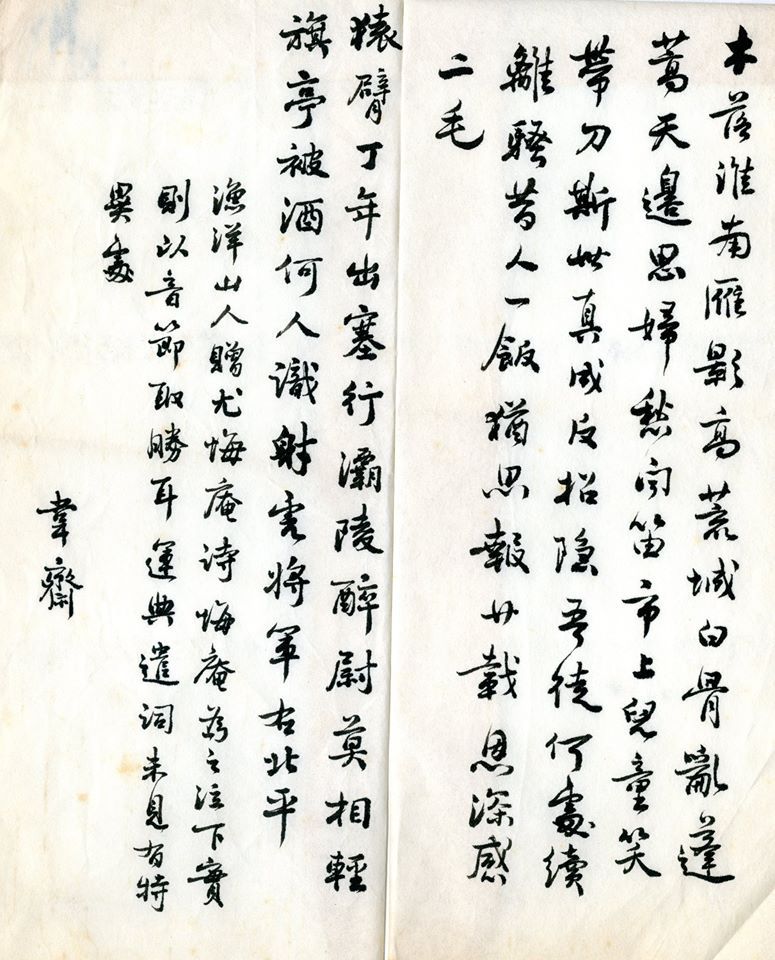 木落淮南雁影高荒城白骨亂蓬
蒿天邊思婦愁聞笛市上兒童笑
帶刀斯世真成反招隱吾徒何處續
離騷昔人一飯猶思報廿載恩深感
二毛
猿臂丁年出塞行灞陵醉尉莫相輕
旗亭被酒何人識射虎將軍右北平
漁洋山人贈尤悔庵詩悔庵為之泣下實
則以音節取勝耳運典遣詞未見有特
異處
韋齋